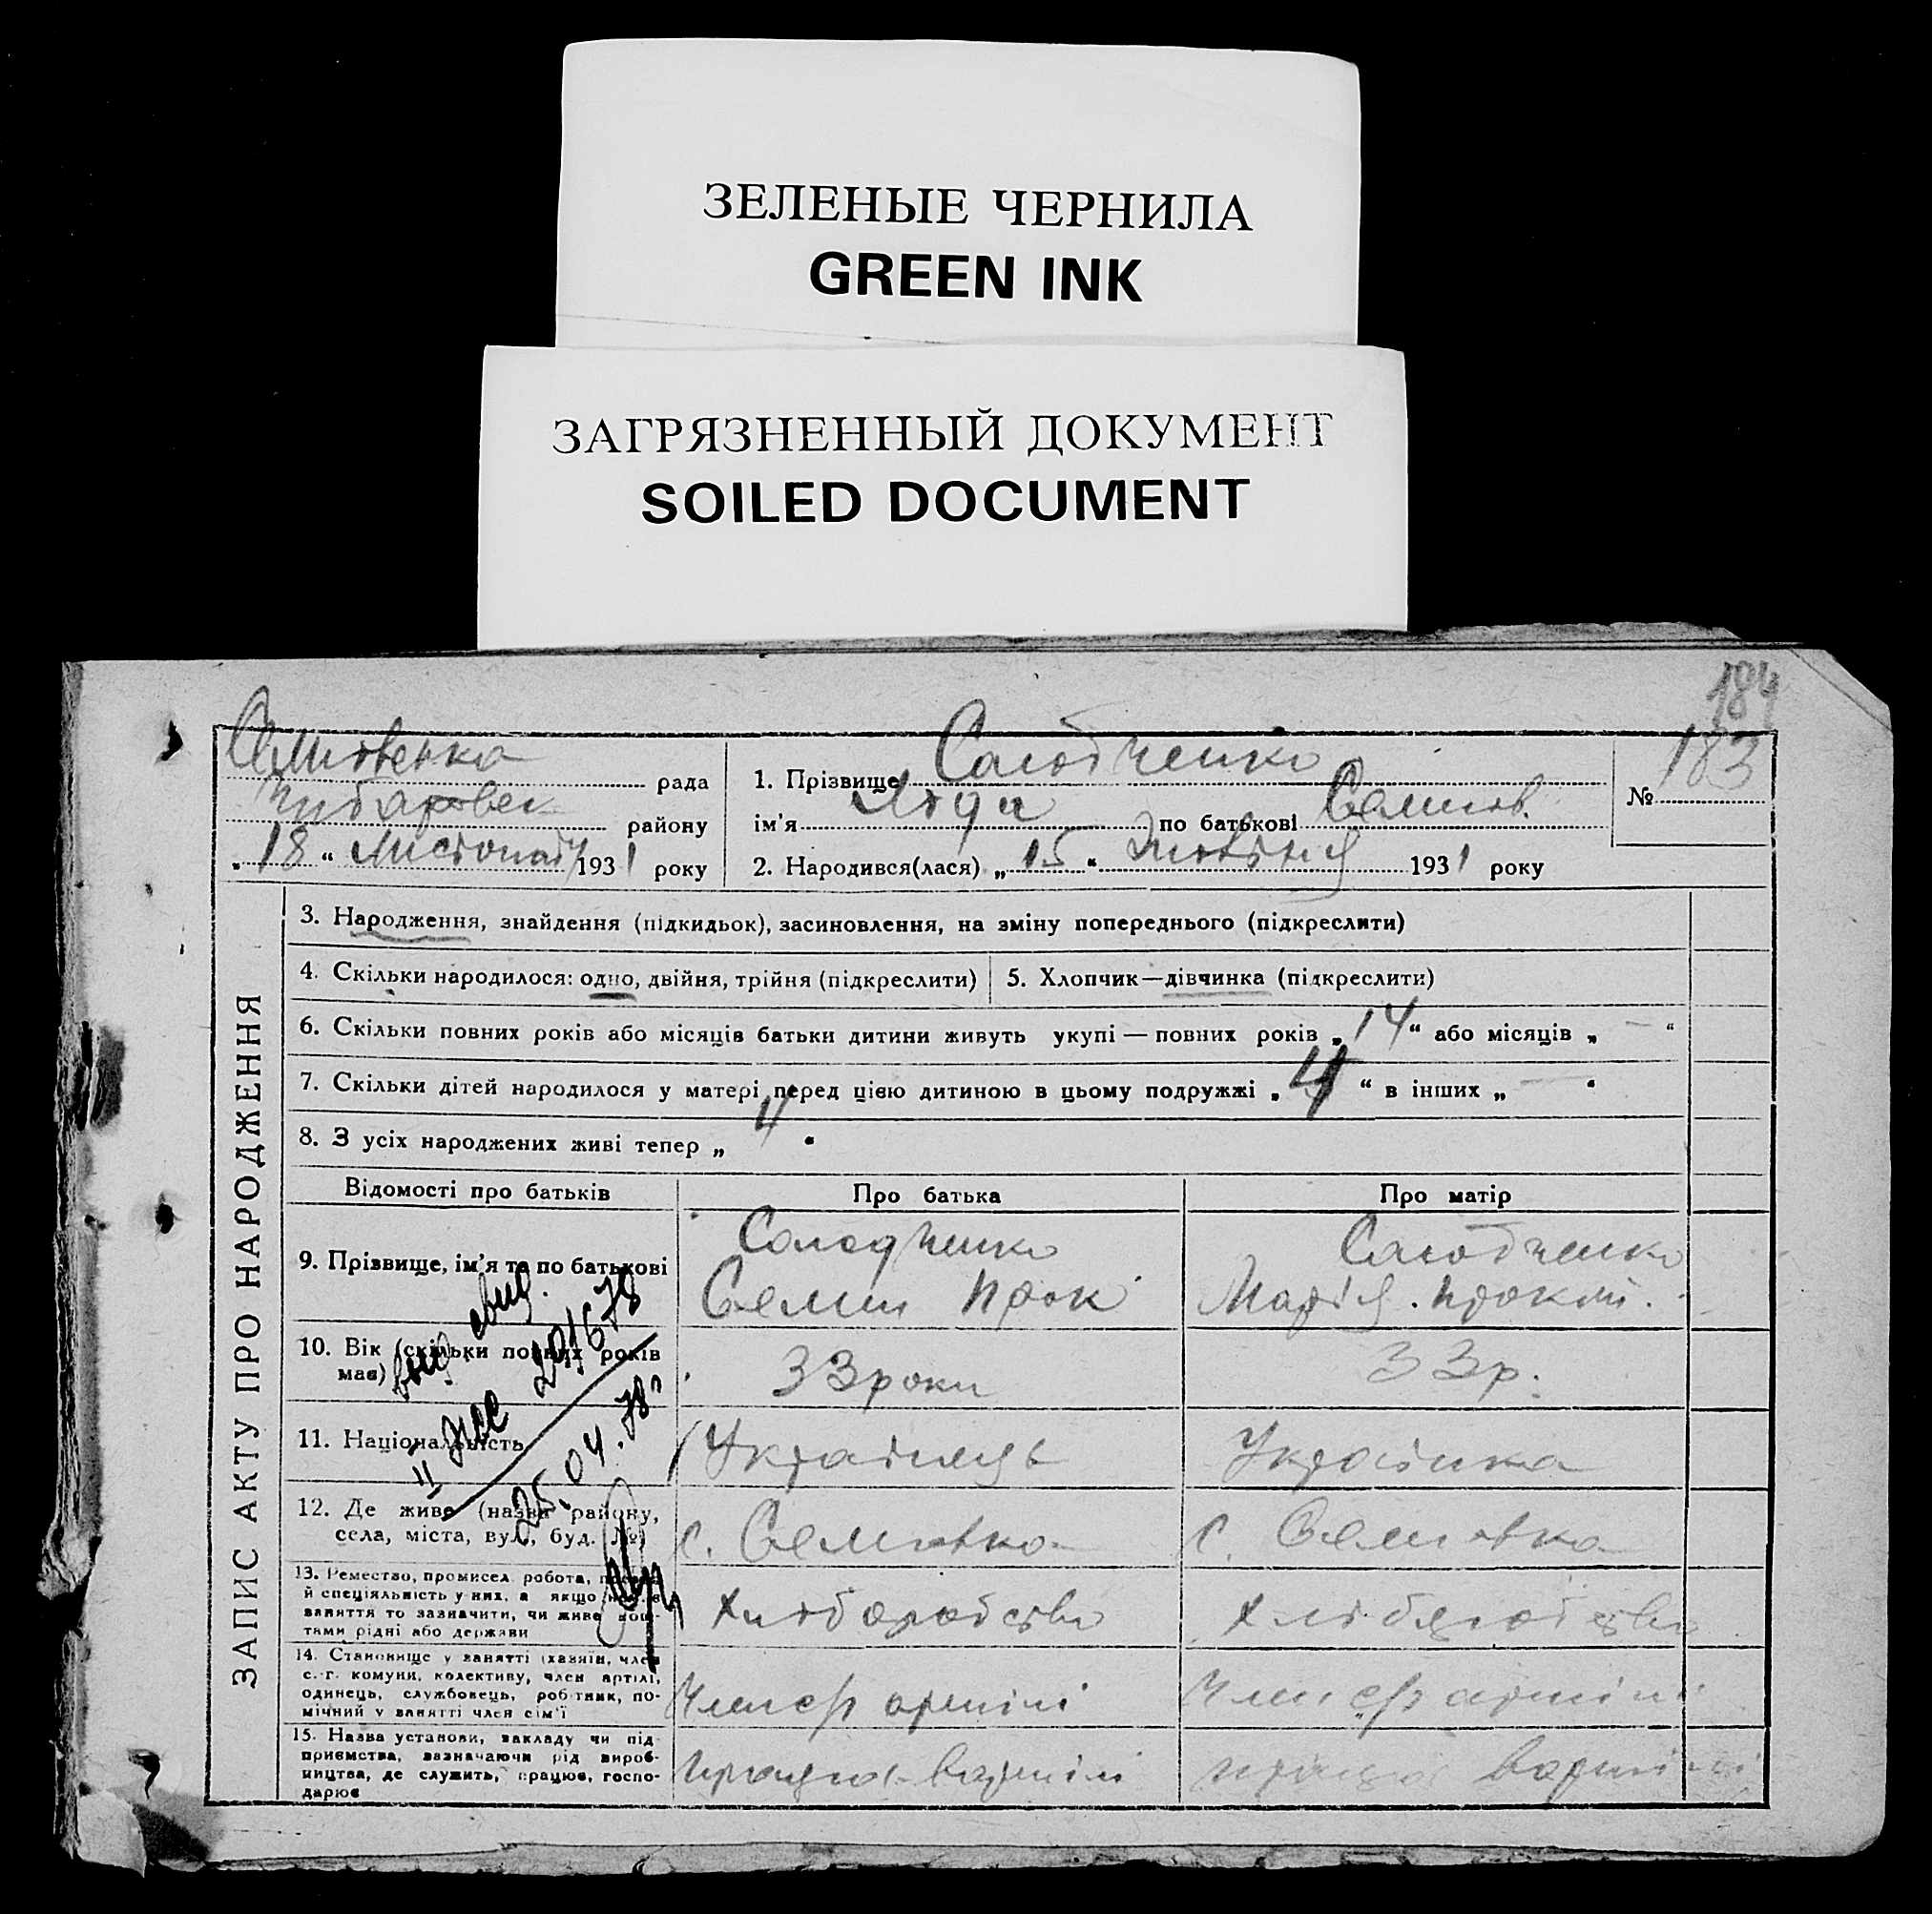 ЗЕЛЕНЫЕ ЧЕРНИЛА
GREEN INK
ЗАГРЯЗНЕННЫЙ ДОКУМЕНТ
SOILED DOCUMENT
184
183
№
рада
району
„18“ Листопад 1931 року
1. Прізвище Солодченко
ім'я Ліда по батькові Семенов.
2. Народився(лася) „15“ 1931 року
ЗАПИС АКТУ ПРО НАРОДЖЕННЯ
3. Народження, знайдення (підкидьок), засиновлення, на зміну попереднього (підкреслити)
4. Скільки народилося: одно, двійня, трійня (підкреслити)
5. Хлопчик—дівчинка (підкреслити)
6. Скільки повних років або місяців батьки дитини живуть укупі — повних років „14“ або місяців „—“
7. Скільки дітей народилося у матері перед цією дитиною в цьому подружжі „4“ в інших „—“
8. З усіх народжених живі тепер „4“
Відомості про батьків
Про батька
Про матір
9. Прізвище, ім'я та по батькові
Солодченко
Семен Прок
Солодченко
Марія. Проком.
10. Вік (скільки повних років має)
33 роки
33 р.
11. Національність
Українець
Українка
12. Де живе (назва району,
села, міста, вул., буд. №)
с. Семенівка
с. Семенівка
13. Ремество, промисел, робота, посада
й спеціяльність у них, а якщо нема
заняття то зазначити, чи живе кош-
тами рідні або держави
Хліборобство
Хліборобство
14. Становище у занятті (хазяїн, член
с.-г. комуни, колективу, член артілі,
одинець, службовець, робітник, по-
мічний у занятті член сім'ї
Член с/г артілі
Член с/г артілі
15. Назва установи, закладу чи під-
приємства, зазначаючи рід вироб-
ництва, де служить, працює, госпо-
дарює
працює в артілі
працює в артілі
вид. свид.
II ЖС 291678
25.04.78г